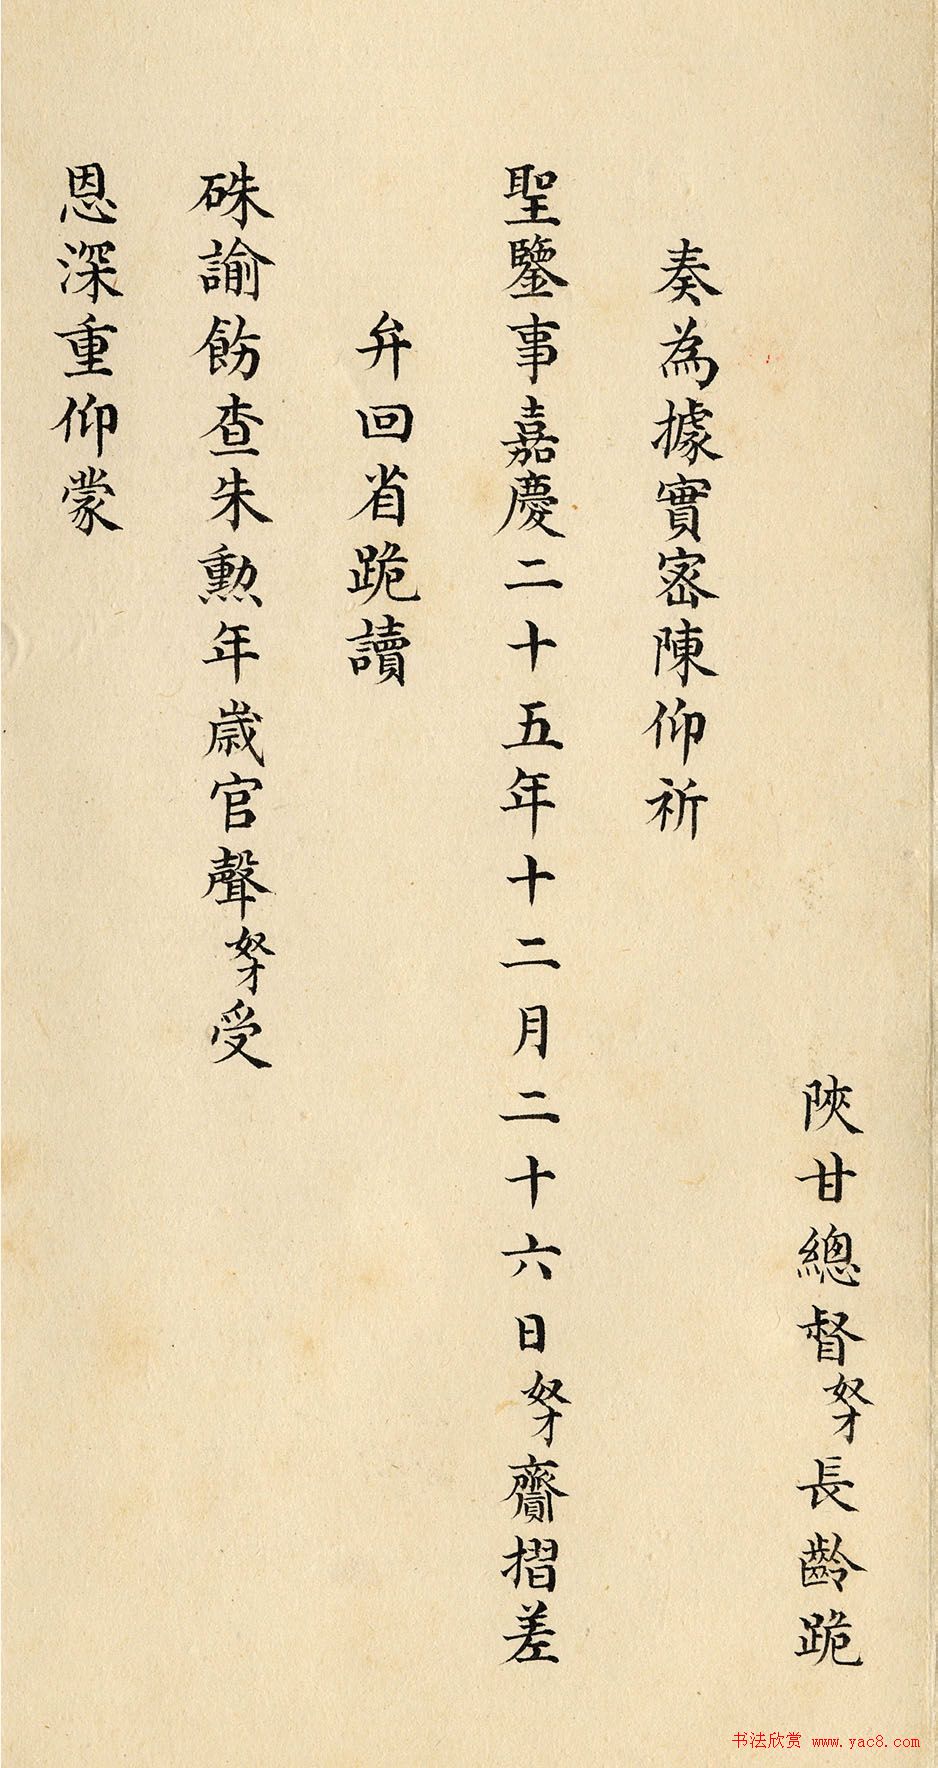 陝甘總督奴才長齡跪
奏為據實密陳仰祈
聖鑒事嘉慶二十五年十二月二十六日奴才齎摺差
弁回省跪讀
硃諭飭查朱勲年歲官聲奴才受
恩深重仰蒙
书法欣赏 www.yac8.com